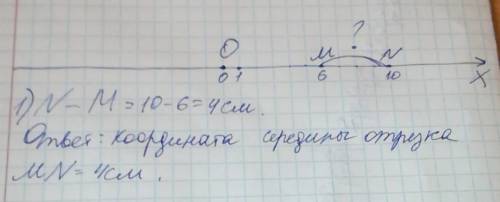 ?
O M N
0 1 6 10 X
1) N - M = 10 - 6 = 4 см.
Ответ: координата середины отрезка
MN = 4 см.